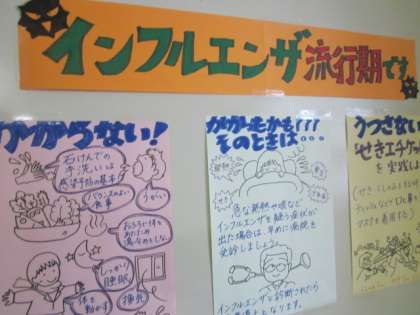 インフルエンザ流行期です
かからない!
石けんでの
手洗いは
感染予防の基本
バランスのよい
食事
うがい
しっかり
睡眠
体を
動かす
換気
かかったかも???
そのときは…
急な発熱や咳など
インフルエンザを疑う症状が
出た場合は、早めに病院を
受診しましょう。
インフルエンザと診断されたら
うつさない
「せきエチケット
を実践
マスクを着用する